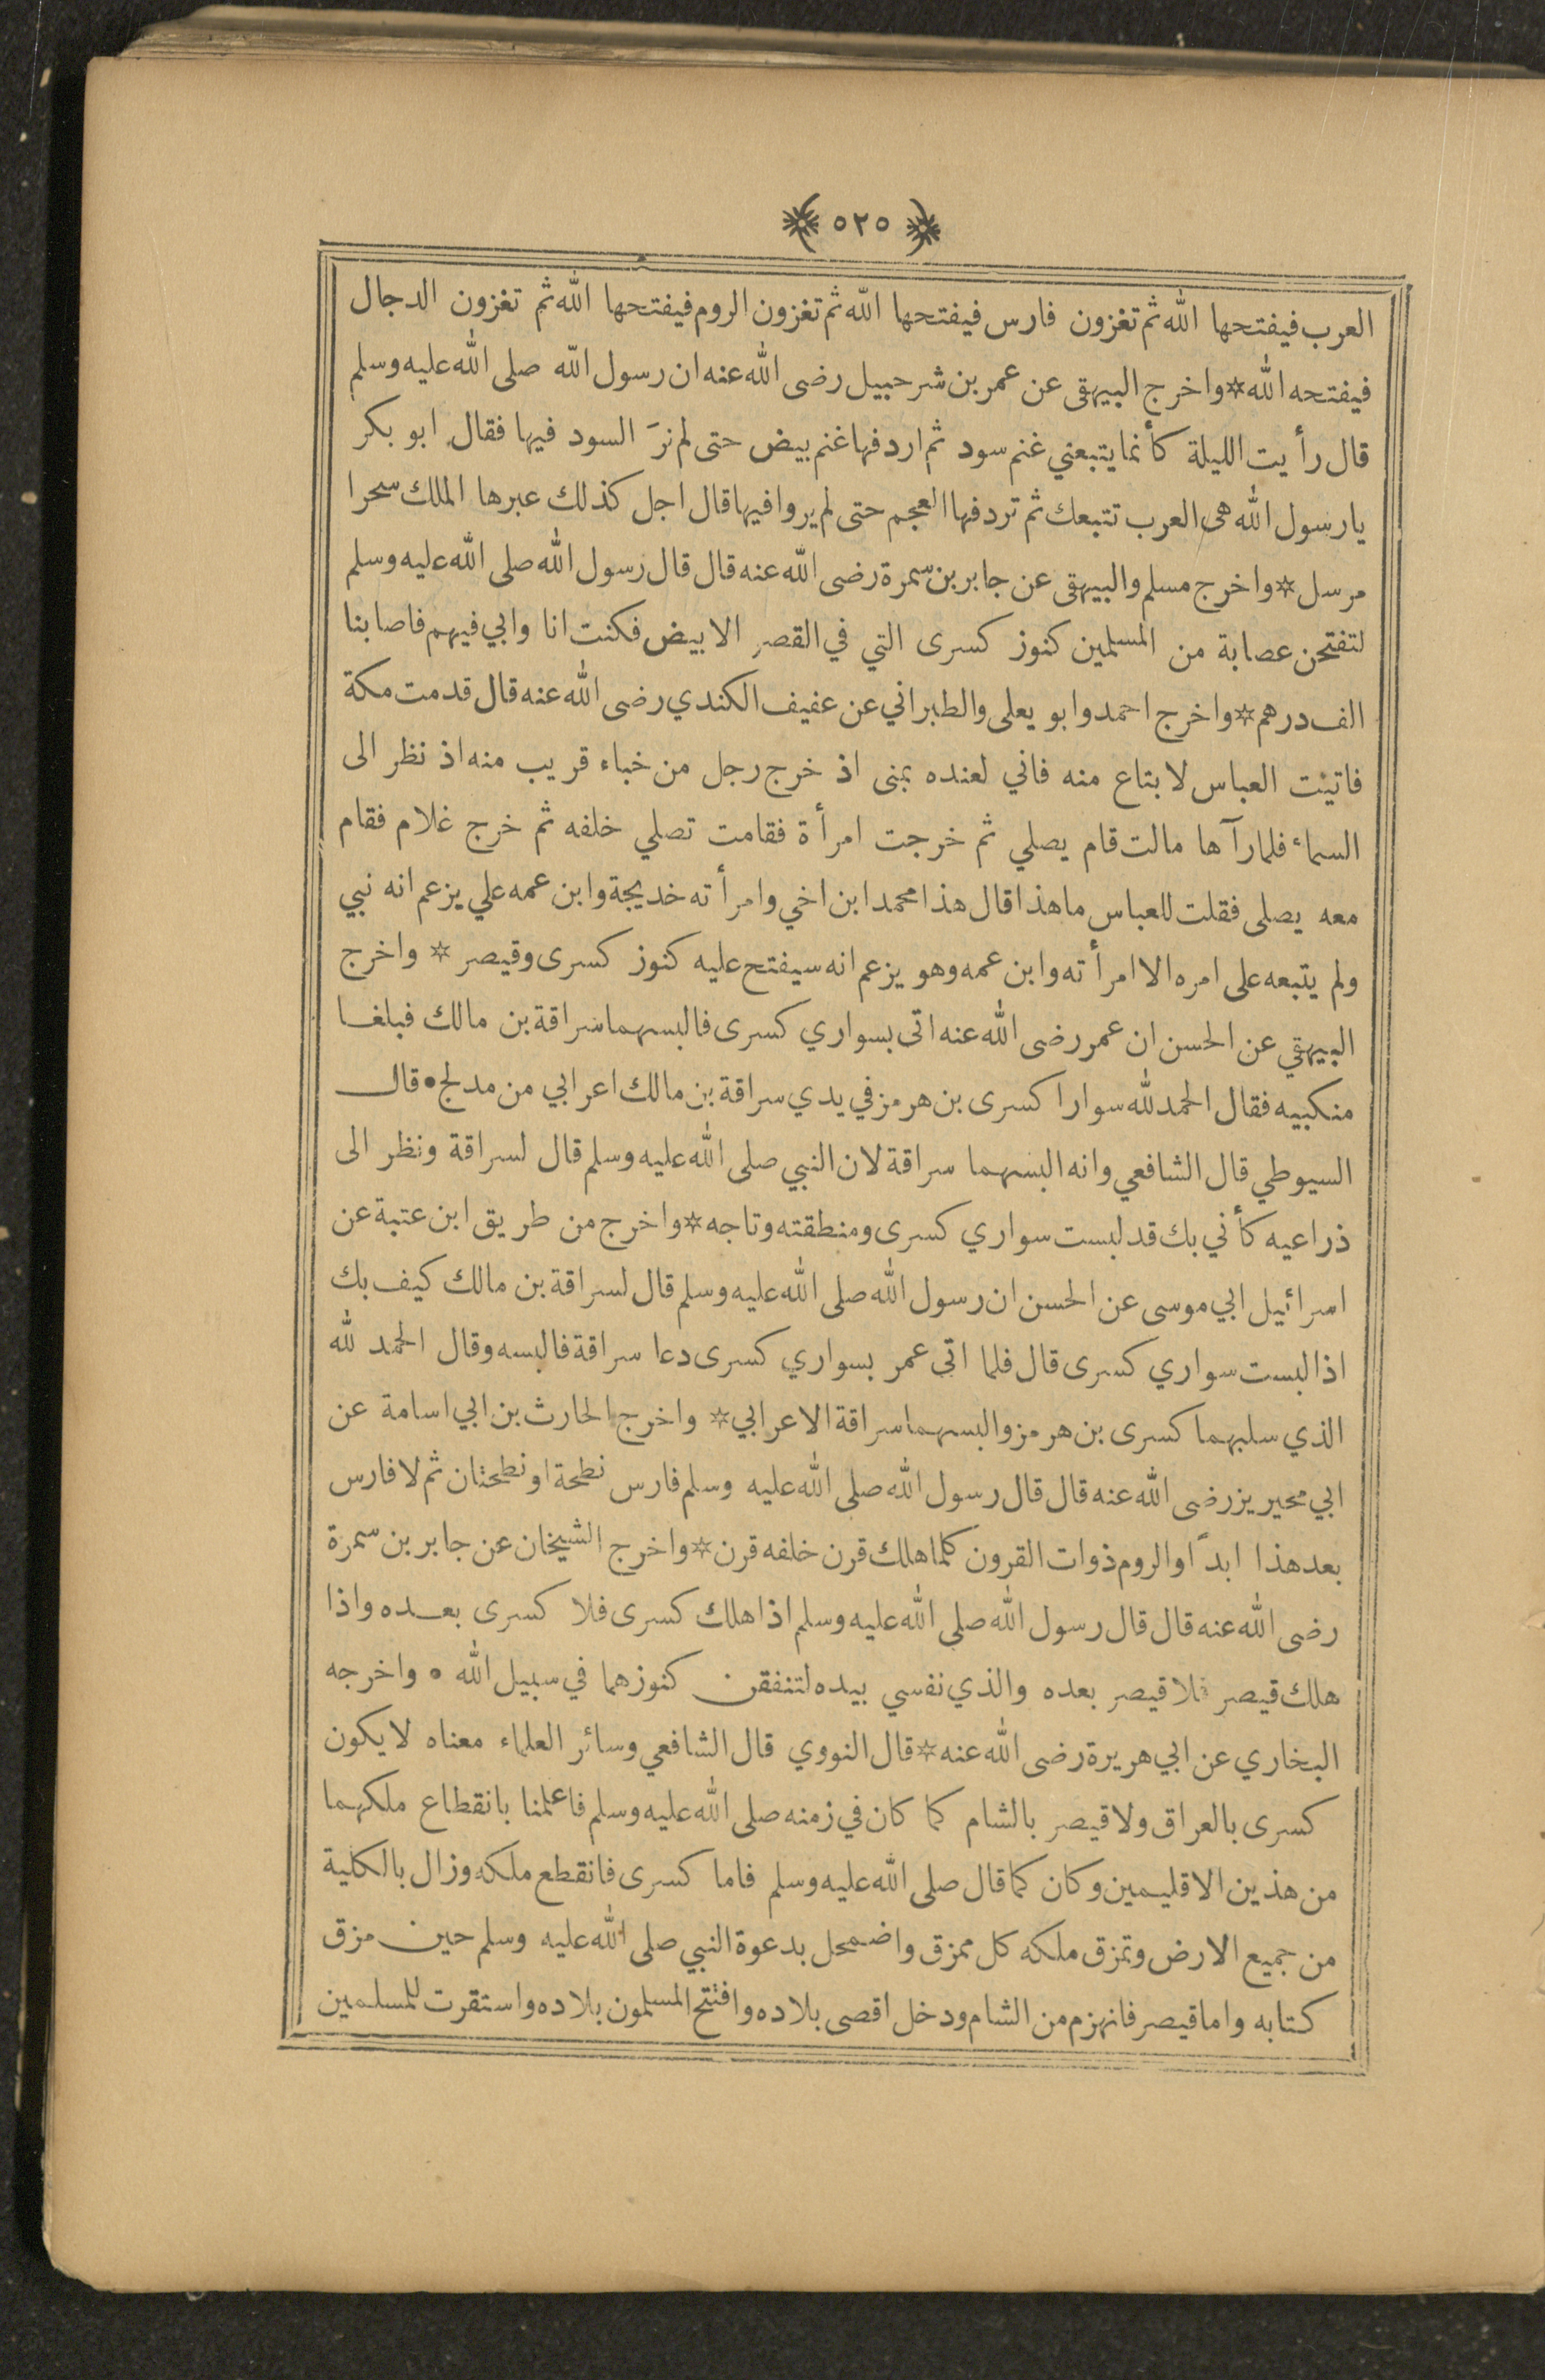 ٥٢٥
العرب فيفتحها الله ثم تغزون فارس فيفتحها الله ثم تغزون الروم فيفتحها الله ثم تغزون الدجال
فيفتحه الله * واخرج البيهقى عن عمر بن شرحبيل رضى الله عنه ان رسول الله صلى الله عليه وسلم
قال رأيت الليلة كأنما يتبعني غنم سود ثم اردفها غنم بيض حتى لم نرَ السود فيها فقال ابو بكر
يا رسول الله هى العرب تتبعك ثم تردفها العجم حتى لم يروا فيها قال اجل كذلك عبرها الملك سحرا
مرسل * واخرج مسلم والبيهقى عن جابر بن سمرة رضى الله عنه قال قال رسول الله صلى الله عليه وسلم
لتفتحن عصابة من المسلمين كنوز كسرى التي في القصر الابيض فكنت انا وابي فيهم فاصابنا
الف درهم * واخرج احمد وابو يعلى والطبراني عن عفيف الكندي رضى الله عنه قال قدمت مكة
فاتيت العباس لابتاع منه فاني لعنده بمنى اذ خرج رجل من خباء قريب منه اذ نظر الى
السماء فلما رآها مالت قام يصلي ثم خرجت امرأة فقامت تصلي خلفه ثم خرج غلام فقام
معه يصلى فقلت للعباس ما هذا قال هذا محمد ابن اخي وامرأته خديجة وابن عمه علي يزعم انه نبي
ولم يتبعه على امره الا امرأته وابن عمه وهو يزعم انه سيفتح عليه كنوز كسرى وقيصر * واخرج
البيهقي عن الحسن ان عمر رضى الله عنه اتى بسواري كسرى فالبسهما سراقة بن مالك فبلغا
منكبيه فقال الحمد لله سوارا كسرى بن هرمز في يدي سراقة بن مالك اعرابي من مدلج • قال
السيوطي قال الشافعي وانه البسهما سراقة لان النبي صلى الله عليه وسلم قال لسراقة ونظر الى
ذراعيه كأني بك قد لبست سواري كسرى ومنطقته وتاجه * واخرج من طريق ابن عتبة عن
اسرائيل ابي موسى عن الحسن ان رسول الله صلى الله عليه وسلم قال لسراقة بن مالك كيف بك
اذا لبست سواري كسرى قال فلما اتى عمر بسواري كسرى دعا سراقة فالبسه وقال الحمد لله
الذي سلبهما كسرى بن هرمز والبسهما سراقة الاعرابي * واخرج الحارث بن ابي اسامة عن
ابي محيريز رضى الله عنه قال قال رسول الله صلى الله عليه وسلم فارس نطحة او نطحتان ثم لا فارس
بعد هذا ابدًا والروم ذوات القرون كلما هلك قرن خلفه قرن * واخرج الشيخان عن جابر بن سمرة
رضى الله عنه قال قال رسول الله صلى الله عليه وسلم اذا هلك كسرى فلا كسرى بعده واذا
هلك قيصر فلا قيصر بعده والذي نفسي بيده لتنفقن كنوزهما في سبيل الله • واخرجه
البخاري عن ابي هريرة رضى الله عنه * قال النووي قال الشافعي وسائر العلماء معناه لا يكون
كسرى بالعراق ولا قيصر بالشام كما كان في زمنه صلى الله عليه وسلم فاعلمنا بانقطاع ملكهما
من هذين الاقليمين وكان كما قال صلى الله عليه وسلم فاما كسرى فانقطع ملكه وزال بالكلية
من جميع الارض وتمزق ملكه كل ممزق واضمحل بدعوة النبي صلى الله عليه وسلم حين مزق
كتابه واما قيصر فانهزم من الشام ودخل اقصى بلاده وافتتح المسلمون بلاده واستقرت للمسلمين